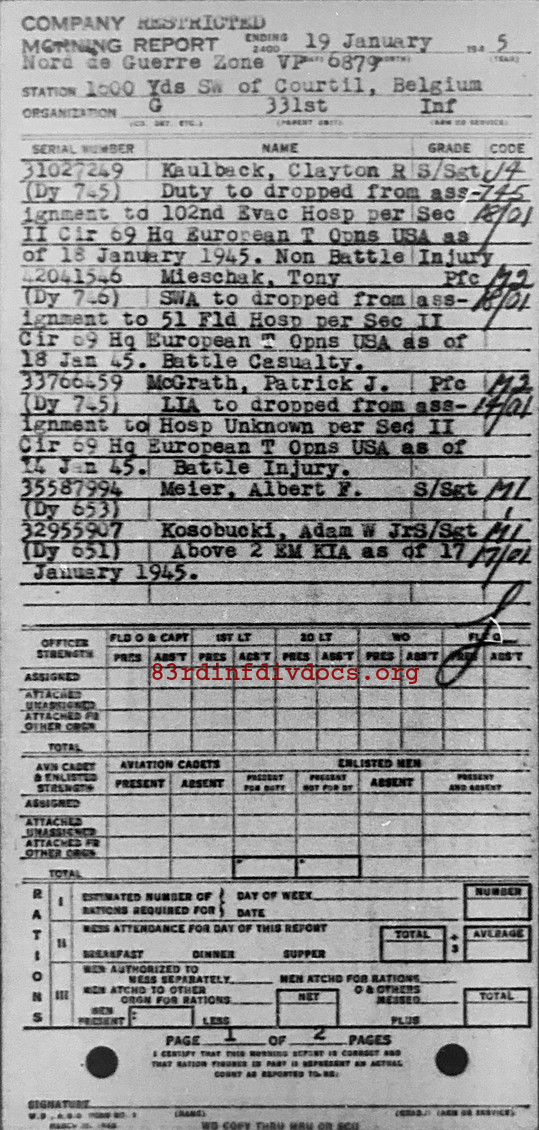 COMPANY RESTRICTED
MORNING REPORT ENDING 2400 19 January 194 5
Nord de Guerre Zone VP 6879
STATION 1500 Yds SW of Courtil, Belgium
ORGANIZATION G 331st Inf
(CO. DET. ETC.) (PARENT UNIT) (ARM OR SERVICE)
SERIAL NUMBER NAME GRADE CODE
31027249 Kaulback, Clayton R S/Sgt J4
(Dy 745) Duty to dropped from ass- 745
ignment to 102nd Evac Hosp per Sec 18/01
II Cir 69 Hq European T Opns USA as
of 18 January 1945. Non Battle Injury
42041546 Mieschak, Tony Pfc M2
(Dy 746) SWA to dropped from ass- 18/01
ignment to 51 Fld Hosp per Sec II
Cir 69 Hq European T Opns USA as of
18 Jan 45. Battle Casualty.
33766459 McGrath, Patrick J. Pfc M2
(Dy 745) LIA to dropped from ass- 14/01
ignment to Hosp Unknown per Sec II
Cir 69 Hq European T Opns USA as of
14 Jan 45. Battle Injury.
35587994 Meier, Albert F. S/Sgt M1
(Dy 653)
32955907 Kosobucki, Adam W Jr S/Sgt M1
(Dy 651) Above 2 EM KIA as of 17 17/01
January 1945.
OFFICER STRENGTH FLD O & CAPT 1ST LT 2D LT WO FLT O
PRES ABS'T PRES ABS'T PRES ABS'T PRES ABS'T PRES ABS'T
83rdinfdivdocs.org
ASSIGNED
ATTACHED UNASSIGNED
ATTACHED FR OTHER ORGN
TOTAL
AVN CADET & ENLISTED STRENGTH AVIATION CADETS ENLISTED MEN
PRESENT ABSENT PRESENT FOR DUTY PRESENT NOT FOR DY ABSENT PRESENT AND ABSENT
ASSIGNED
ATTACHED UNASSIGNED
ATTACHED FR OTHER ORGN
TOTAL
RATIONS
I ESTIMATED NUMBER OF RATIONS REQUIRED FOR DAY OF WEEK DATE NUMBER
II MESS ATTENDANCE FOR DAY OF THIS REPORT TOTAL ÷ 3 AVERAGE
BREAKFAST DINNER SUPPER
III MEN AUTHORIZED TO MESS SEPARATELY MEN ATCHD FOR RATIONS
MEN ATCHD TO OTHER ORGN FOR RATIONS NET O & OTHERS MESSED TOTAL
MEN PRESENT LESS PLUS
PAGE 1 OF 2 PAGES
I CERTIFY THAT THIS MORNING REPORT IS CORRECT AND
THAT RATION FIGURES IN PART II REPRESENT AN ACTUAL
COUNT AS REPORTED TO ME:
SIGNATURE
W.D., A.G.O. FORM NO. 1 (NAME) (GRADE) (ARM OR SERVICE)
WD COPY THRU MRU OR SCU